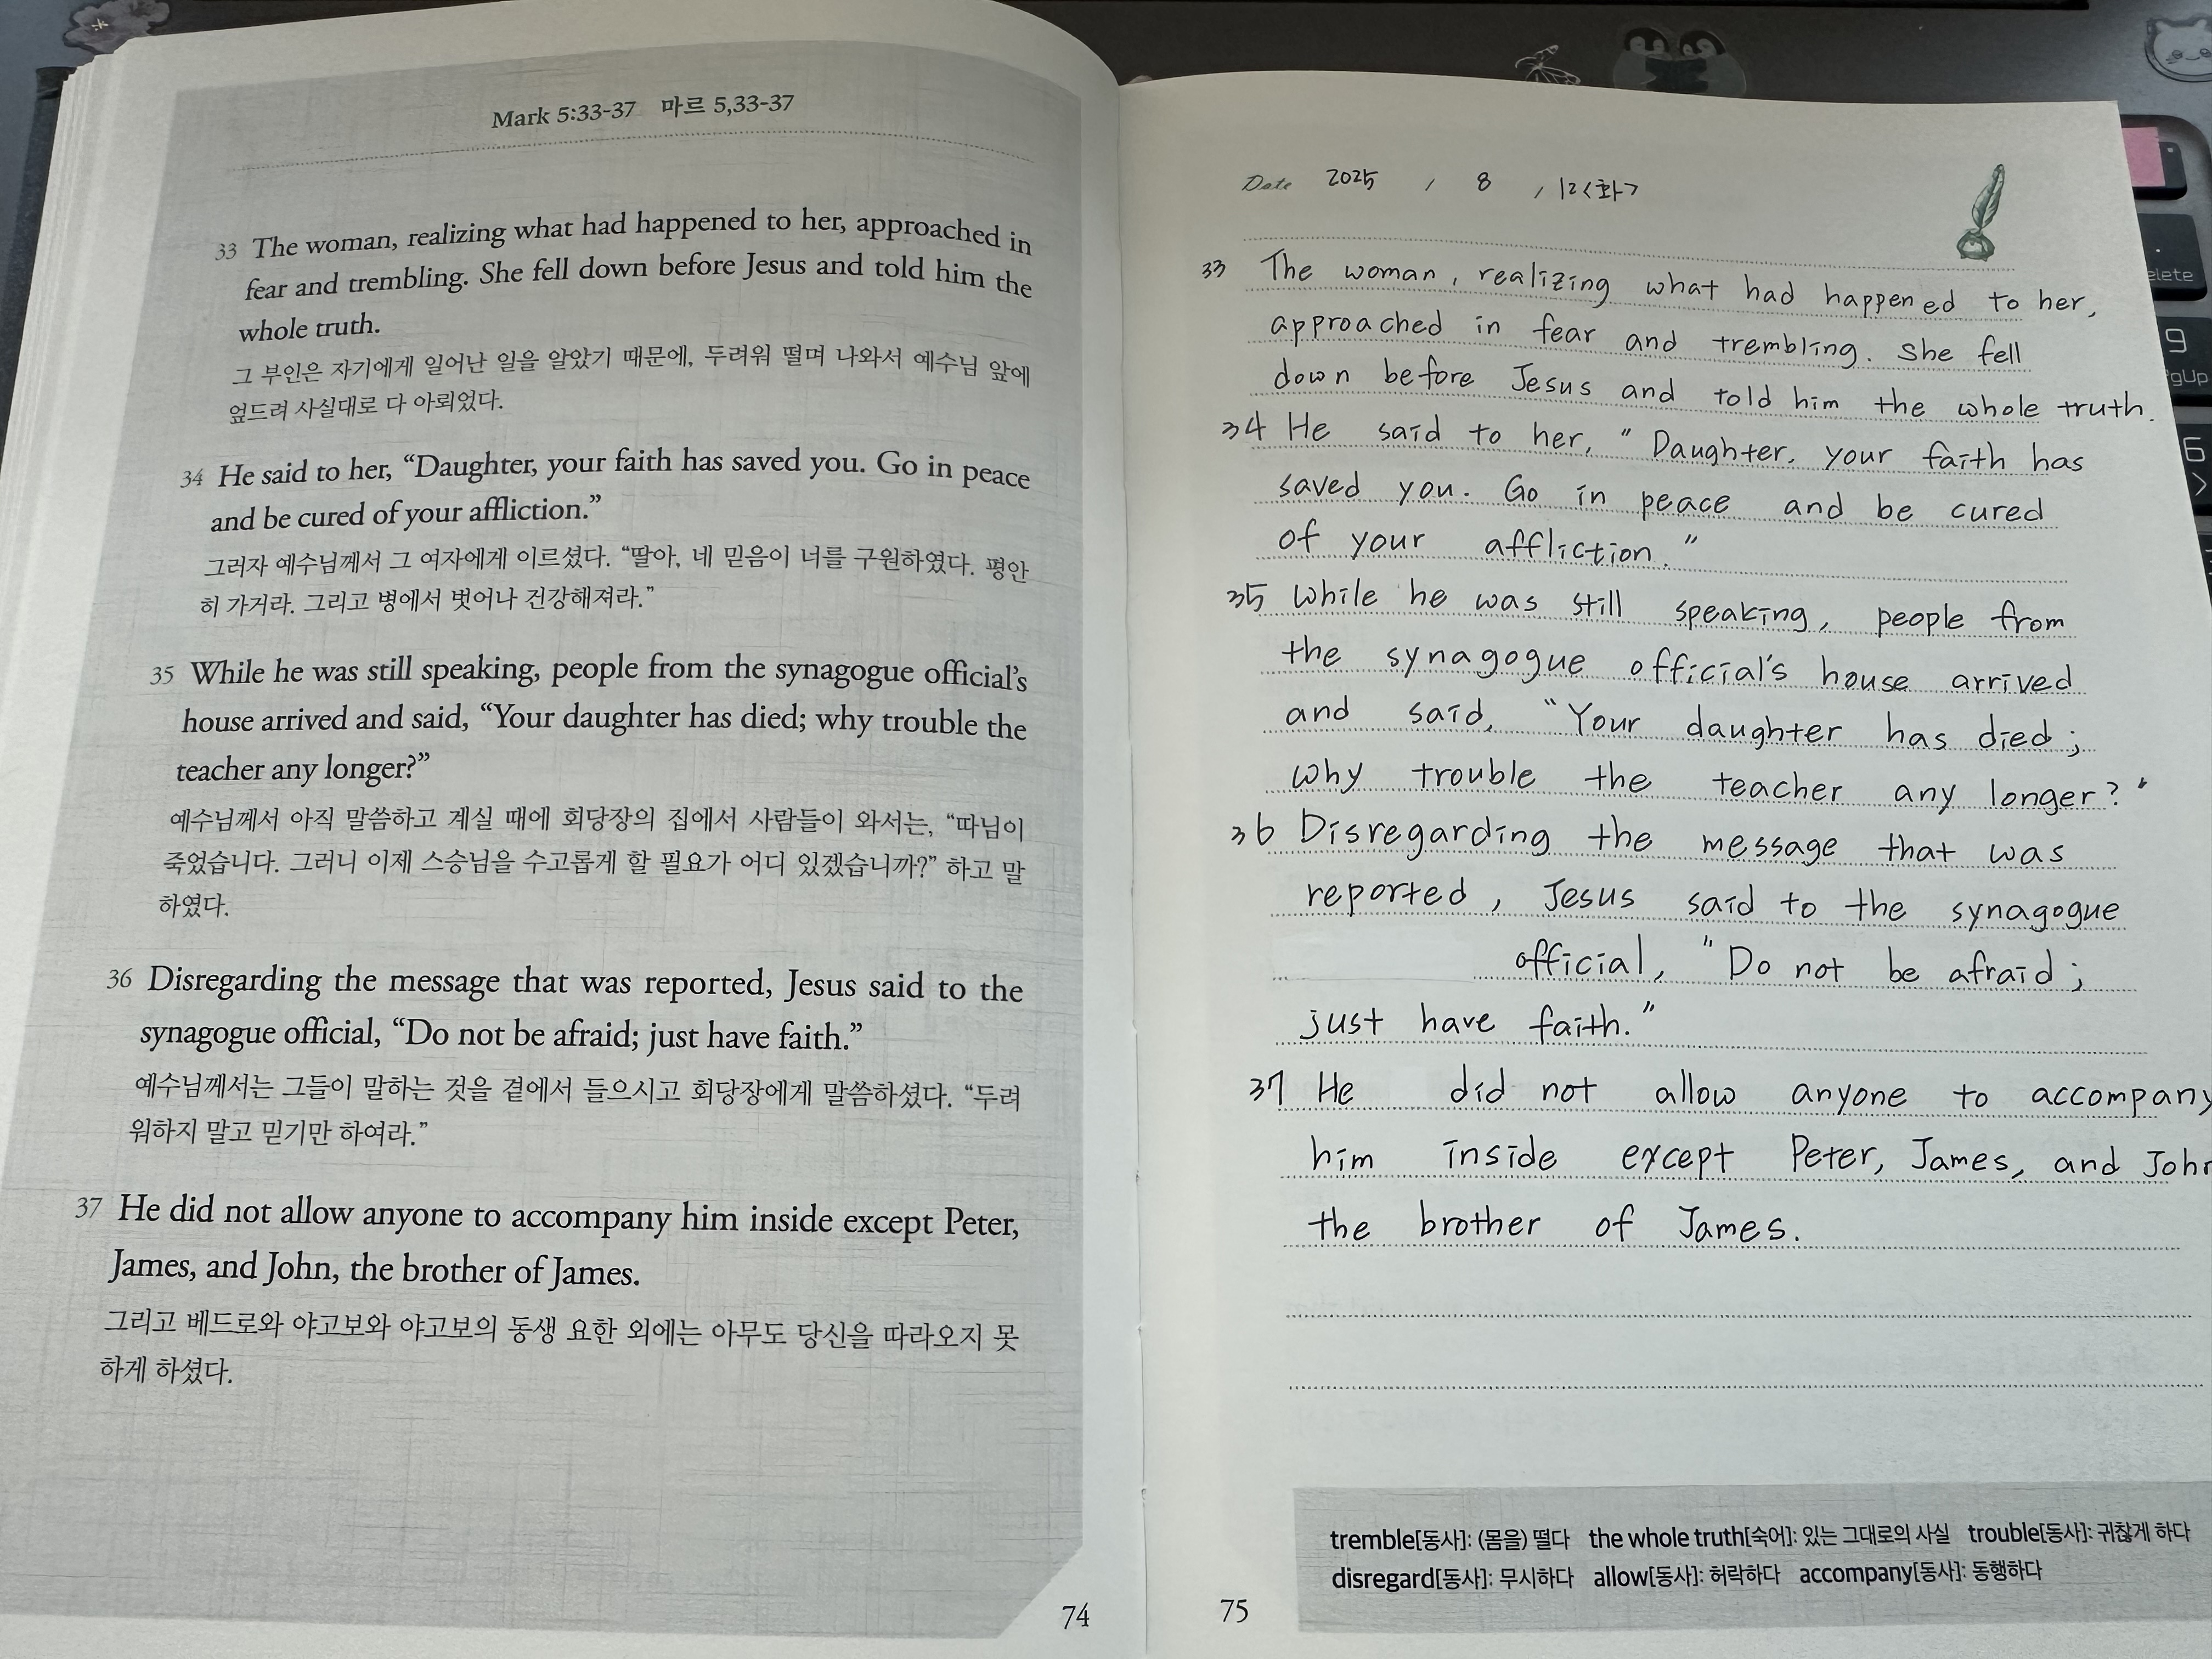 Mark 5:33-37 마르 5,33-37
33 The woman, realizing what had happened to her, approached in
fear and trembling. She fell down before Jesus and told him the
whole truth.
그 부인은 자기에게 일어난 일을 알았기 때문에, 두려워 떨며 나와서 예수님 앞에
엎드려 사실대로 다 아뢰었다.
34 He said to her, “Daughter, your faith has saved you. Go in peace
and be cured of your affliction.”
그러자 예수님께서 그 여자에게 이르셨다. “딸아, 네 믿음이 너를 구원하였다. 평안
히 가거라. 그리고 병에서 벗어나 건강해져라.”
35 While he was still speaking, people from the synagogue official’s
house arrived and said, “Your daughter has died; why trouble the
teacher any longer?”
예수님께서 아직 말씀하고 계실 때에 회당장의 집에서 사람들이 와서는, “따님이
죽었습니다. 그러니 이제 스승님을 수고롭게 할 필요가 어디 있겠습니까?” 하고 말
하였다.
36 Disregarding the message that was reported, Jesus said to the
synagogue official, “Do not be afraid; just have faith.”
예수님께서는 그들이 말하는 것을 곁에서 들으시고 회당장에게 말씀하셨다. “두려
워하지 말고 믿기만 하여라.”
37 He did not allow anyone to accompany him inside except Peter,
James, and John, the brother of James.
그리고 베드로와 야고보와 야고보의 동생 요한 외에는 아무도 당신을 따라오지 못
하게 하셨다.
74
Date 2025 / 8 / 12<화>
33 The woman, realizing what had happened to her,
approached in fear and trembling. She fell
down before Jesus and told him the whole truth.
34 He said to her, "Daughter, your faith has
saved you. Go in peace and be cured
of your affliction."
35 While he was still speaking, people from
the synagogue official's house arrived
and said, "Your daughter has died;
why trouble the teacher any longer?"
36 Disregarding the message that was
reported, Jesus said to the synagogue
official, "Do not be afraid;
just have faith."
37 He did not allow anyone to accompany
him inside except Peter, James, and John
the brother of James.
tremble[동사]: (몸을) 떨다 the whole truth[숙어]: 있는 그대로의 사실 trouble[동사]: 귀찮게 하다
disregard[동사]: 무시하다 allow[동사]: 허락하다 accompany[동사]: 동행하다
75
9
6
>